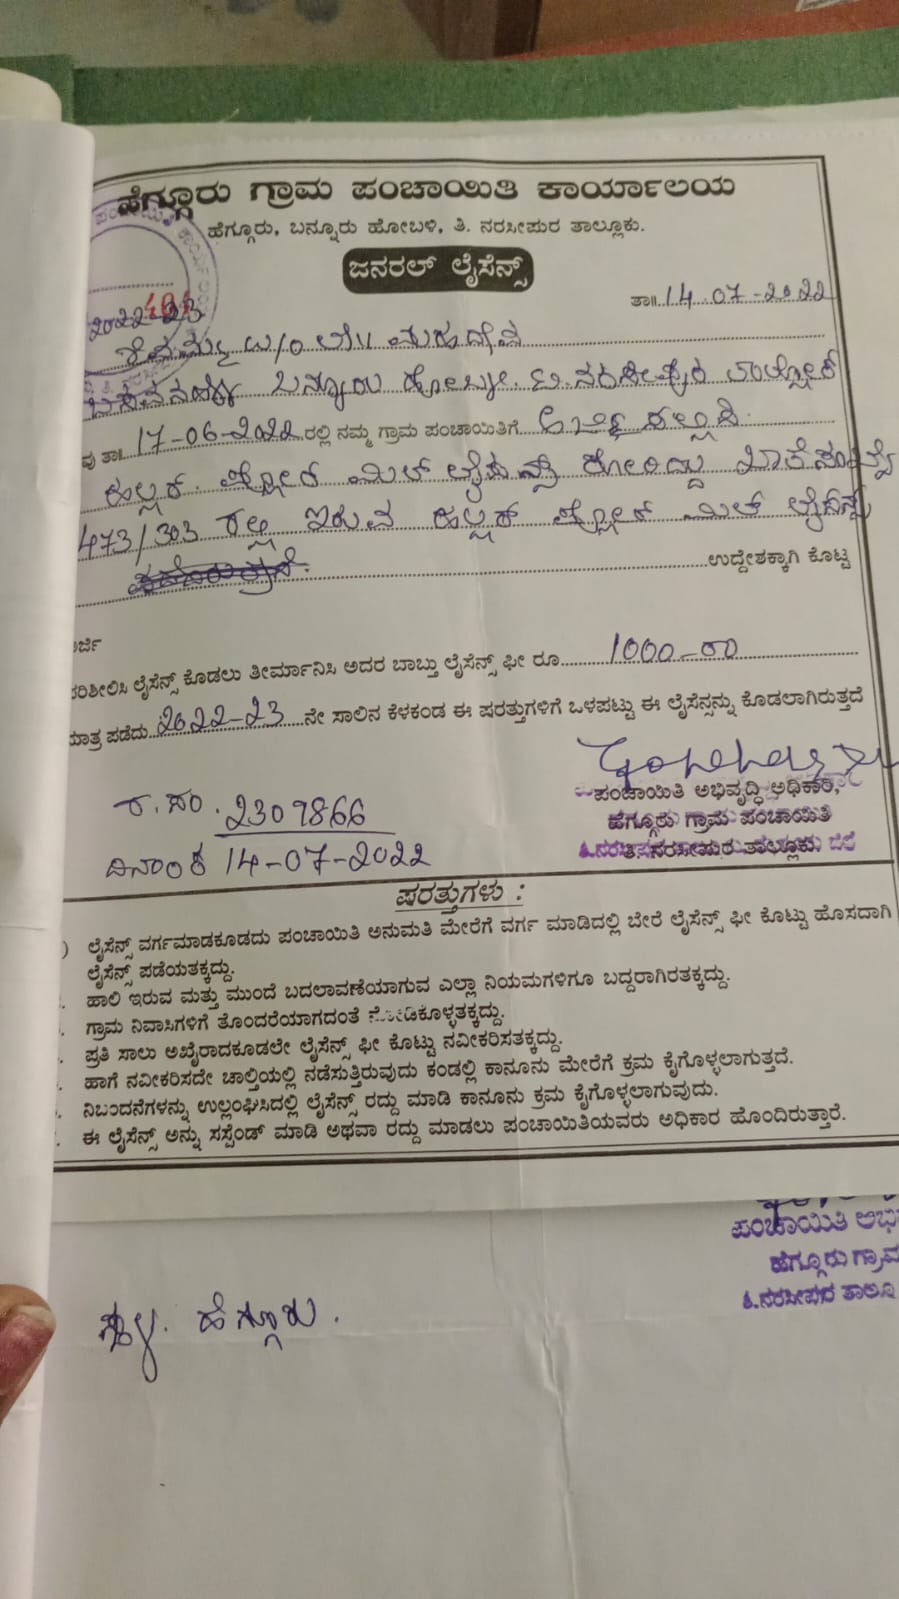 ಹೆಗ್ಗೂರು ಗ್ರಾಮ ಪಂಚಾಯಿತಿ ಕಾರ್ಯಾಲಯ
ಹೆಗ್ಗೂರು, ಬನ್ನೂರು ಹೋಬಳಿ, ತಿ. ನರಸೀಪುರ ತಾಲ್ಲೂಕು.
ಜನರಲ್ ಲೈಸೆನ್ಸ್
ತಾ॥ 14-07-2022
2022-23
W/o ಲೇ॥ ಮಹದೇವ
ಬನ್ನೂರು ಹೋಬಳಿ.
ತಾ॥ 17-06-2022 ರಲ್ಲಿ ನಮ್ಮ ಗ್ರಾಮ ಪಂಚಾಯಿತಿಗೆ ಅರ್ಜಿ ಸಲ್ಲಿಸಿ
ಹಲ್ಲರ್ ಫ್ಲೋರ್ ಮಿಲ್ ಲೈಸೆನ್ಸ್ ಕೋರಿದ್ದು
473/303 ರಲ್ಲಿ ಇರುವ ಹಲ್ಲರ್ ಫ್ಲೋರ್ ಮಿಲ್ ಲೈಸೆನ್ಸ್
ಉದ್ದೇಶಕ್ಕಾಗಿ ಕೊಟ್ಟ
ಪರಿಶೀಲಿಸಿ ಲೈಸೆನ್ಸ್ ಕೊಡಲು ತೀರ್ಮಾನಿಸಿ ಅದರ ಬಾಬ್ತು ಲೈಸೆನ್ಸ್ ಫೀ ರೂ 1000-00
ಮಾತ್ರ ಪಡೆದು 2022-23 ನೇ ಸಾಲಿನ ಕೆಳಕಂಡ ಈ ಷರತ್ತುಗಳಿಗೆ ಒಳಪಟ್ಟು ಈ ಲೈಸೆನ್ಸನ್ನು ಕೊಡಲಾಗಿರುತ್ತದೆ
ಪಂಚಾಯಿತಿ ಅಭಿವೃದ್ಧಿ ಅಧಿಕಾರಿ,
ಹೆಗ್ಗೂರು ಗ್ರಾಮ ಪಂಚಾಯಿತಿ
ತಿ. ನರಸೀಪುರ ತಾಲ್ಲೂಕು
ರ.ಸಂ. 2307866
ದಿನಾಂಕ 14-07-2022
ಷರತ್ತುಗಳು :
) ಲೈಸೆನ್ಸ್ ವರ್ಗಮಾಡಕೂಡದು ಪಂಚಾಯಿತಿ ಅನುಮತಿ ಮೇರೆಗೆ ವರ್ಗ ಮಾಡಿದಲ್ಲಿ ಬೇರೆ ಲೈಸೆನ್ಸ್ ಫೀ ಕೊಟ್ಟು ಹೊಸದಾಗಿ
ಲೈಸೆನ್ಸ್ ಪಡೆಯತಕ್ಕದ್ದು.
ಹಾಲಿ ಇರುವ ಮತ್ತು ಮುಂದೆ ಬದಲಾವಣೆಯಾಗುವ ಎಲ್ಲಾ ನಿಯಮಗಳಿಗೂ ಬದ್ದರಾಗಿರತಕ್ಕದ್ದು.
ಗ್ರಾಮ ನಿವಾಸಿಗಳಿಗೆ ತೊಂದರೆಯಾಗದಂತೆ ನೋಡಿಕೊಳ್ಳತಕ್ಕದ್ದು.
ಪ್ರತಿ ಸಾಲು ಅಖೈರಾದಕೂಡಲೇ ಲೈಸೆನ್ಸ್ ಫೀ ಕೊಟ್ಟು ನವೀಕರಿಸತಕ್ಕದ್ದು.
ಹಾಗೆ ನವೀಕರಿಸದೇ ಚಾಲ್ತಿಯಲ್ಲಿ ನಡೆಸುತ್ತಿರುವುದು ಕಂಡಲ್ಲಿ ಕಾನೂನು ಮೇರೆಗೆ ಕ್ರಮ ಕೈಗೊಳ್ಳಲಾಗುತ್ತದೆ.
ನಿಬಂದನೆಗಳನ್ನು ಉಲ್ಲಂಘಿಸಿದಲ್ಲಿ ಲೈಸೆನ್ಸ್ ರದ್ದು ಮಾಡಿ ಕಾನೂನು ಕ್ರಮ ಕೈಗೊಳ್ಳಲಾಗುವುದು.
ಈ ಲೈಸೆನ್ಸ್ ಅನ್ನು ಸಸ್ಪೆಂಡ್ ಮಾಡಿ ಅಥವಾ ರದ್ದು ಮಾಡಲು ಪಂಚಾಯಿತಿಯವರು ಅಧಿಕಾರ ಹೊಂದಿರುತ್ತಾರೆ.
ಪಂಚಾಯಿತಿ ಅಭಿ
ಹೆಗ್ಗೂರು ಗ್ರಾಮ
ತಿ.ನರಸೀಪುರ ತಾಲೂ
ಸ್ಥಳ. ಹೆಗ್ಗೂರು.